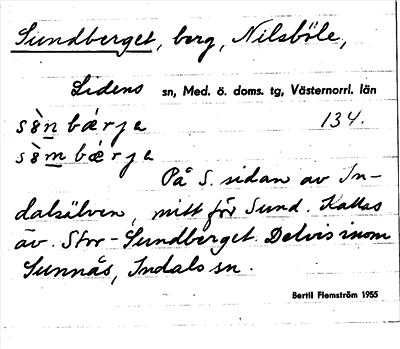 Sundberget, berg, Nilsböle,
Lidens sn, Med. ö. doms. tg, Västernorrl. län
sø̀n bǽrje 134.
sø̀m bǽrje
På S. sidan av In-
dalsälven, mitt för Sund. Kallas
äv. Stor-Sundberget. Delvis inom
Sunnås, Indals sn.
Bertil Flemström 1955